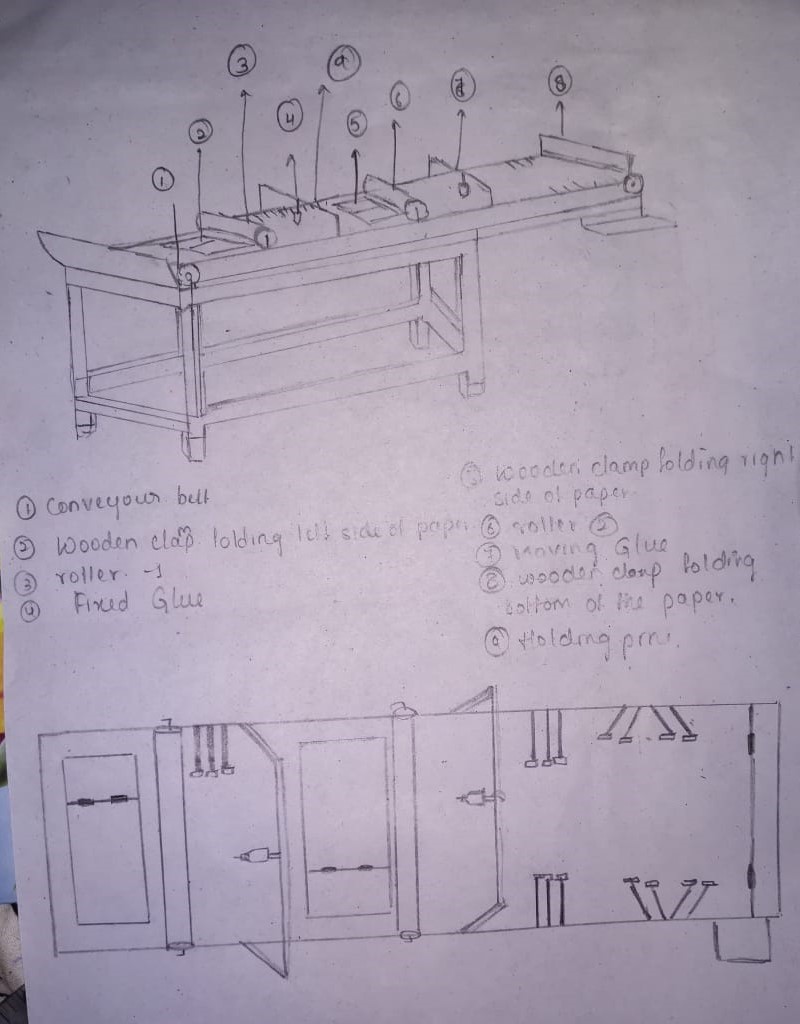 ③ ⑨
② ④ ⑤ ⑥ ⑦ ⑧
①
① Conveyour belt
② Wooden clap folding left side of paper
③ roller -1
④ Fixed Glue
⑤ wooden clamp folding right
side of paper
⑥ roller ②
⑦ Moving Glue
⑧ wooden clamp folding
bottom of the paper.
⑨ Holding